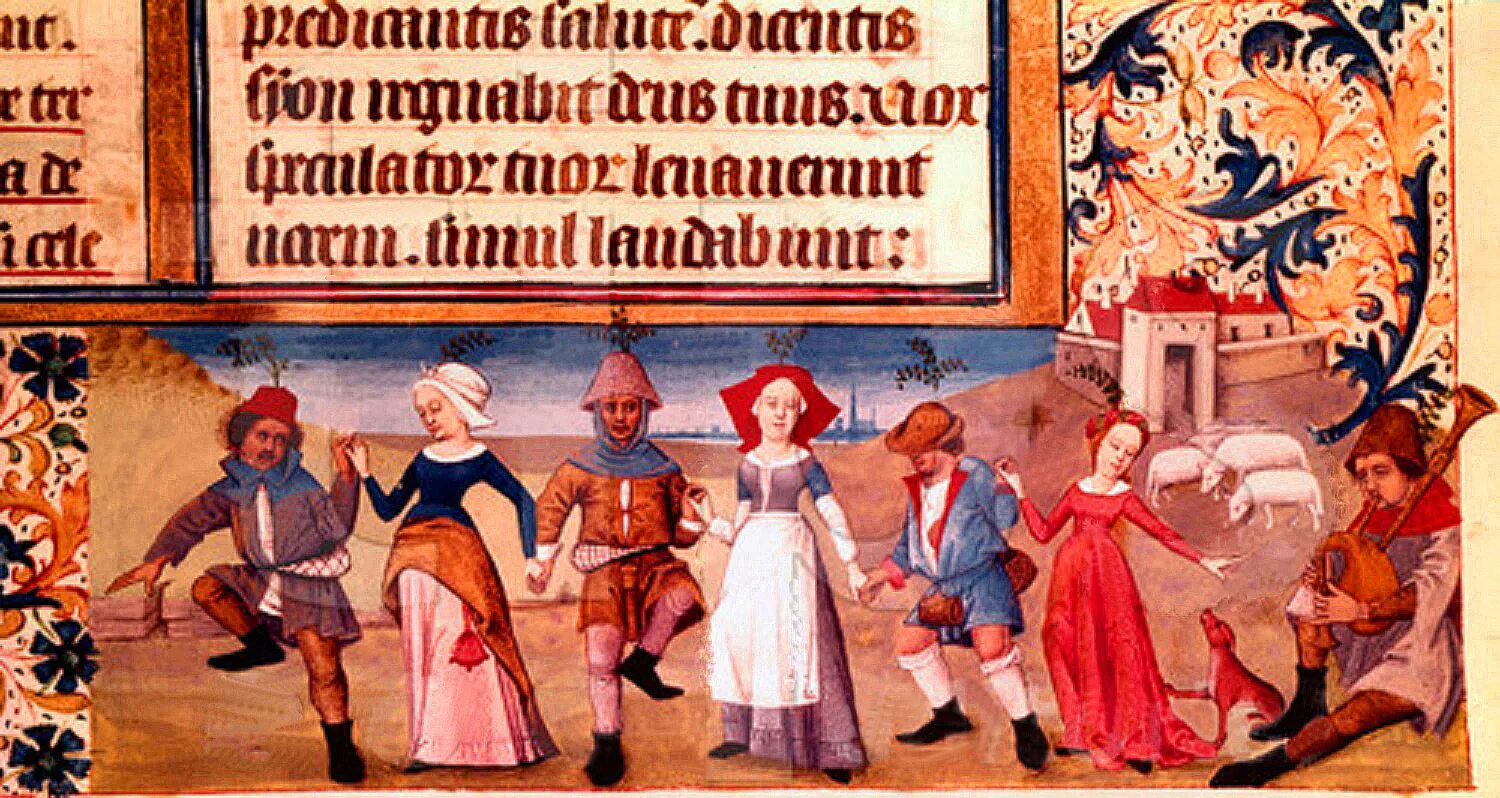 e ter
a de
i cele
predicantis salutē. dicentis
syon regnabit deus tuus. Vox
speculatoꝝ tuoꝝ leuauerunt
uocem. simul laudabunt: